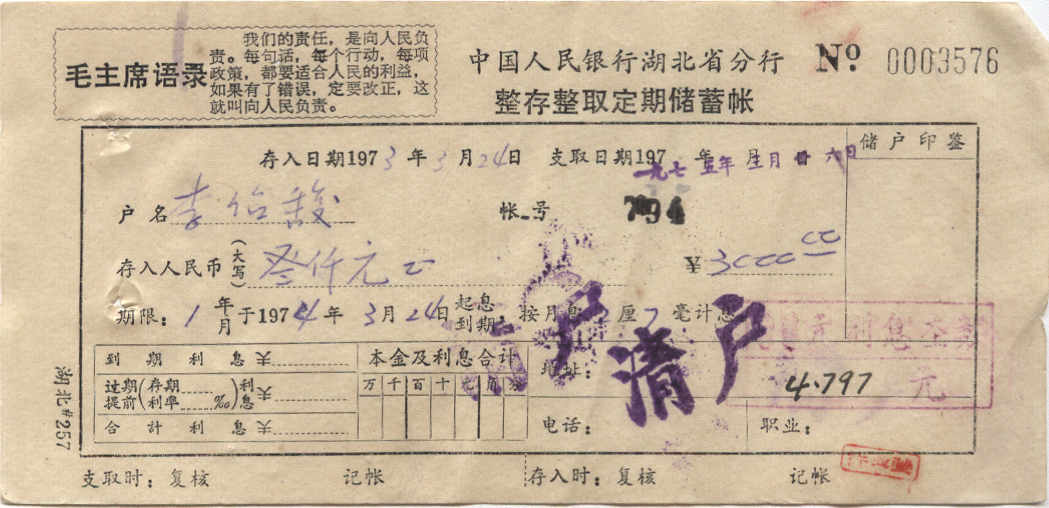 毛主席语录
我们的责任，是向人民负
责。每句话，每个行动，每项
政策，都要适合人民的利益，
如果有了错误，定要改正，这
就叫向人民负责。
中国人民银行湖北省分行 № 0003576
整存整取定期储蓄帐
存入日期1973年3月24日 支取日期197 年 月 日
一九七五年 月廿六日
储户印鉴
户名 李 帐号 7894
存入人民币(大写) 叁仟元 ¥3000 00
期限：1年月于1974年3月24日起息到期，按月息 厘7毫计息
清户
利息
元
到期利息 本金及利息合计 地址：
万千百十元角分
过期提前(存期 利率 ‰)利息
4.797
合计利息 电话： 职业：
支取时：复核 记帐 存入时：复核 记帐
湖北#257